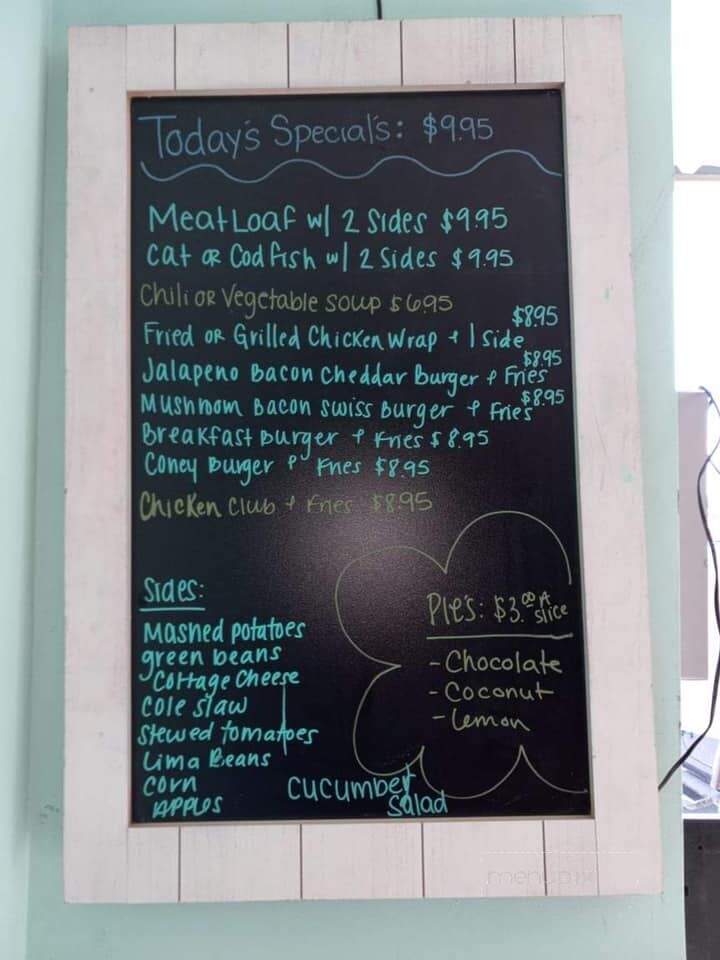 Today's Special's: $9.95
Meat Loaf w/ 2 Sides $9.95
Cat or Cod fish w/ 2 Sides $9.95
Chili or Vegetable Soup $6.95
Fried or Grilled Chicken Wrap + 1 Side $8.95
Jalapeno Bacon Cheddar Burger + Fries $8.95
Mushroom Bacon Swiss Burger + Fries $8.95
Breakfast Burger + Fries $8.95
Coney Burger + Fries $8.95
Chicken Club + Fries $8.95
Sides:
Mashed potatoes
green beans
Cottage Cheese
Cole slaw
Stewed tomatoes
Lima Beans
Corn
Apples
Cucumber
Salad
Pie's: $3.00 A slice
- Chocolate
- Coconut
- Lemon
menupix